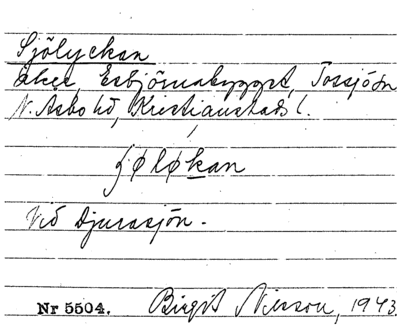 Sjölyckan
åker, Esbjörnabygget, Tossjö sn
N. Åsbo hd, Kristianstads l.
ʃøløkan
Vid Djurasjön.
Nr 5504. Birgit Nilsson, 1943.